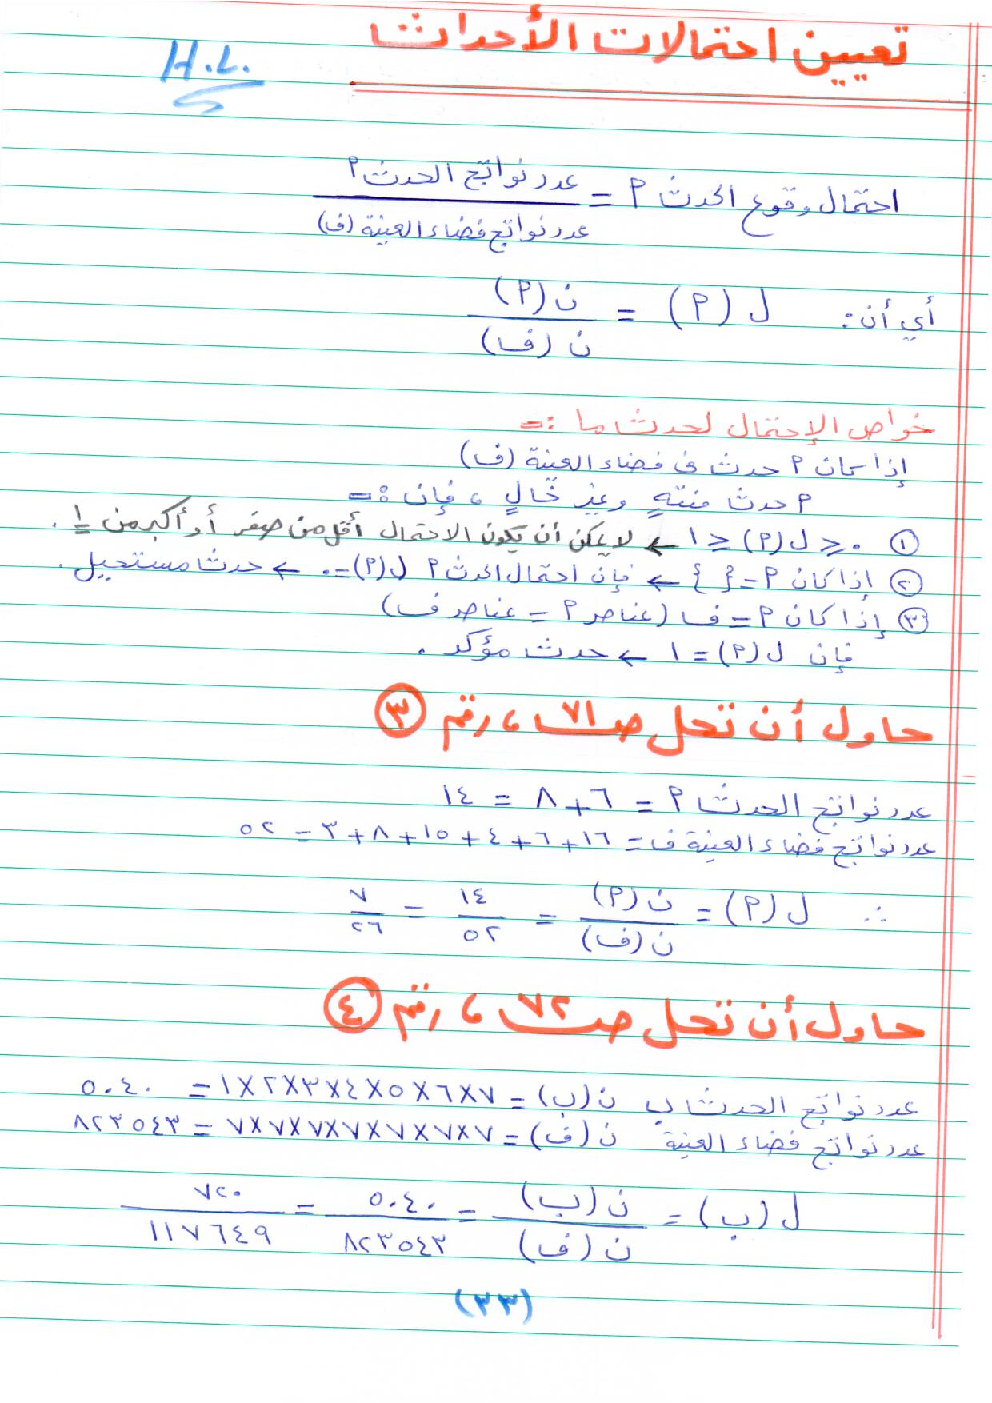 تعيين احتمالات الأحداث
H.L.
احتمال وقوع الحدث م = عدد نواتج الحدث م / عدد نواتج فضاء العينة (ف)
أي أن: ل (م) = ن (م) / ن (ف)
خواص الإحتمال لحدث ما :=
إذا كان م حدث في فضاء العينة (ف)
م حدث منتهٍ وغير خالٍ ، فإن :=
① ٠ ≤ ل (م) ≤ ١ ← لا يمكن أن يكون الاحتمال أقل من صفر أو أكبر من ١ .
② إذا كان م = { } ← فإن احتمال الحدث م ل (م) = ٠ ← حدث مستحيل .
③ إذا كان م = ف (عناصر م = عناصر ف)
فإن ل (م) = ١ ← حدث مؤكد .
حاول أن تحل صـ ٧١ ، رقم ③
عدد نواتج الحدث م = ٦ + ٨ = ١٤
عدد نواتج فضاء العينة ف = ١٦ + ٦ + ٤ + ١٥ + ٨ + ٣ = ٥٢
∴ ل (م) = ن (م) / ن (ف) = ١٤ / ٥٢ = ٧ / ٢٦
حاول أن تحل صـ ٧٢ ، رقم ④
عدد نواتج الحدث ب ن (ب) = ٧×٦×٥×٤×٣×٢×١ = ٥٠٤٠
عدد نواتج فضاء العينة ن (ف) = ٧×٧×٧×٧×٧×٧×٧ = ٨٢٣٥٤٣
ل (ب) = ن (ب) / ن (ف) = ٥٠٤٠ / ٨٢٣٥٤٣ = ٧٢٠ / ١١٧٦٤٩
(٣٣)